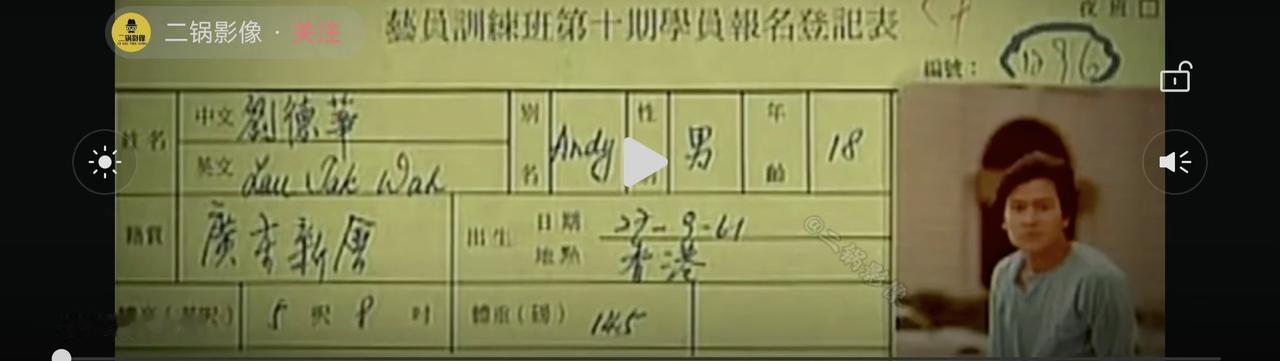 二锅影像 · 关注
藝員訓練班第十期學員報名登記表
夜班□
編號：1296
姓名 中文 劉德華 別名 Andy 性別 男 年齡 18
英文 Lau Tak Wah
籍貫 廣東新會 出生 日期 27-9-61
地點 香港
體高(英呎) 5 呎 8 吋 體重(磅) 145
@二锅影像